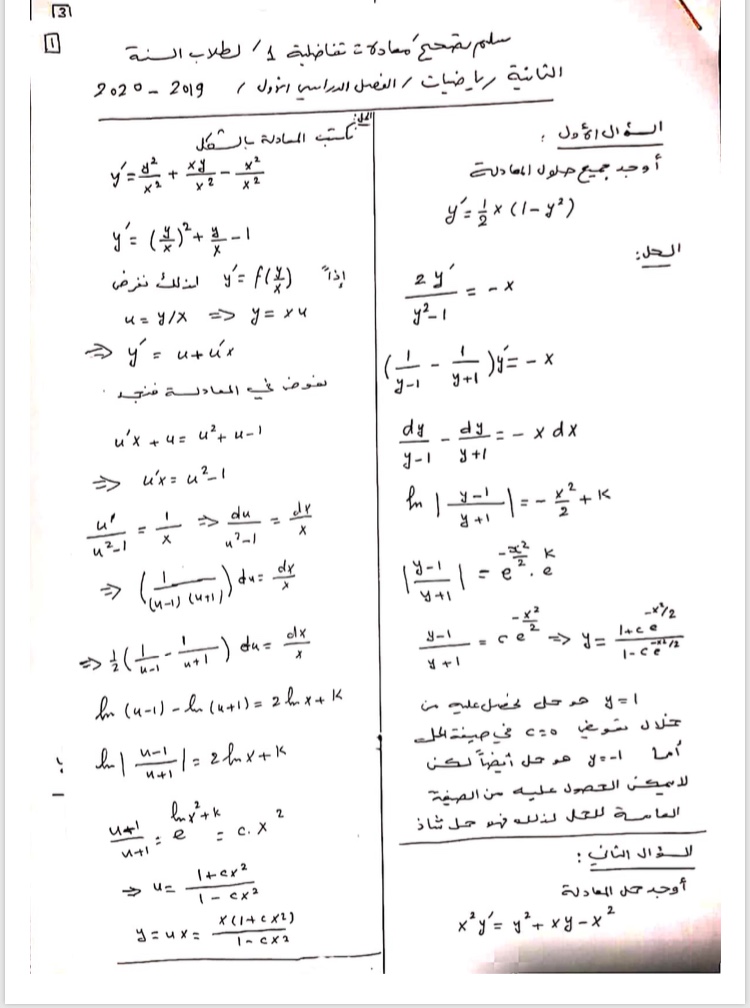 3
1
سلم تصحيح معادلات تفاضلية 1 / لطلاب السنة
الثانية رياضيات / الفصل الدراسي الأول / 2019 - 2020
السؤال الأول :
أوجد جميع حلول المعادلة
y' = 1/2 x (1 - y²)
الحل :
2y' / (y² - 1) = - x
(1/(y-1) - 1/(y+1)) y' = - x
dy/(y-1) - dy/(y+1) = - x dx
ln |(y-1)/(y+1)| = - x²/2 + K
|(y-1)/(y+1)| = e^(-x²/2) . e^K
(y-1)/(y+1) = c e^(-x²/2) ⇒ y = (1+c e^(-x²/2)) / (1-c e^(-x²/2))
y = 1 هو حل نحصل عليه من
خلال تعويض c=0 في صيغة الحل
أما y=-1 هو حل أيضاً لكن
لا يمكن الحصول عليه من الصيغة
العامة للحل لذلك فهو حل شاذ
السؤال الثاني :
أوجد حل المعادلة
x² y' = y² + xy - x²
الحل:
نكتب المعادلة بالشكل
y' = y²/x² + xy/x² - x²/x²
y' = (y/x)² + y/x - 1
إذاً y' = f(y/x) لذلك نفرض
u = y/x ⇒ y = xu
⇒ y' = u + u'x
نعوض في المعادلة فنجد
u'x + u = u² + u - 1
⇒ u'x = u² - 1
u'/(u²-1) = 1/x ⇒ du/(u²-1) = dx/x
⇒ (1/((u-1)(u+1))) du = dx/x
⇒ 1/2 (1/(u-1) - 1/(u+1)) du = dx/x
ln (u-1) - ln (u+1) = 2 ln x + K
ln |(u-1)/(u+1)| = 2 ln x + K
(u+1)/(u+1) = e^(ln x² + k) = c . x²
⇒ u = (1+cx²) / (1-cx²)
y = ux = x(1+cx²) / (1-cx²)